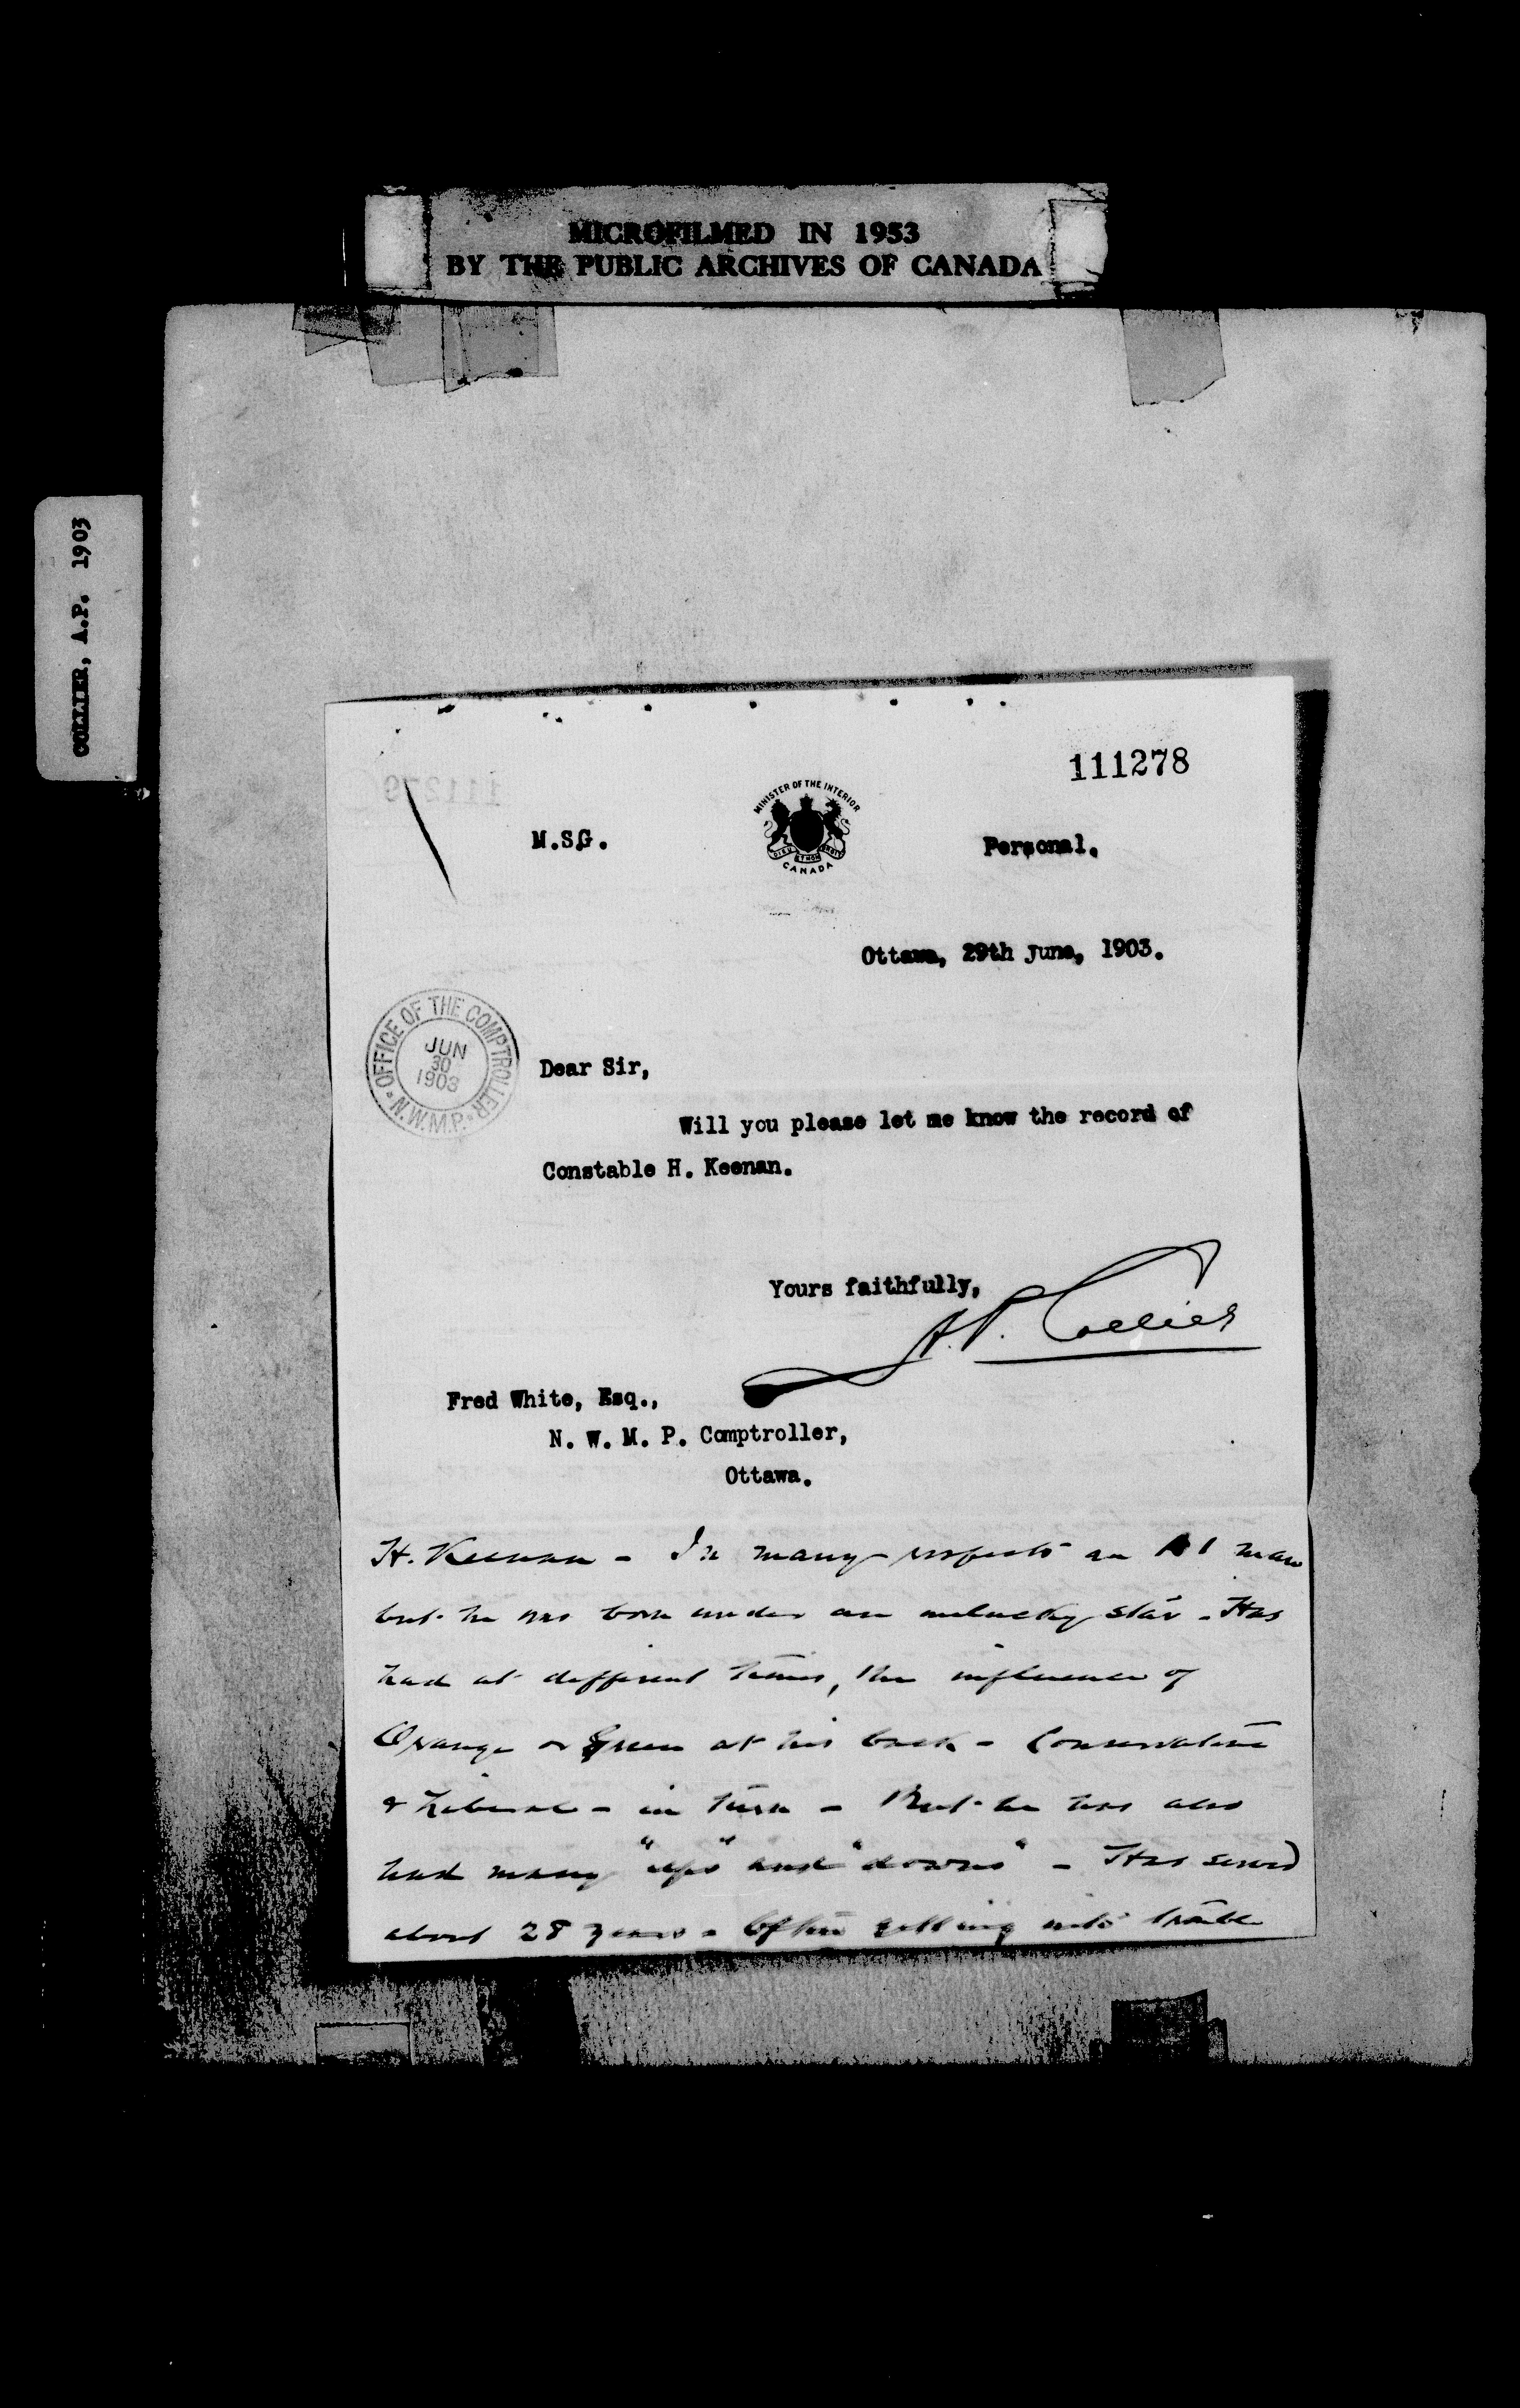 MICROFILMED IN 1953
BY THE PUBLIC ARCHIVES OF CANADA
COLLIER, A.P. 1903
111278
111279
MINISTER OF THE INTERIOR
DIEU ET MON DROIT
CANADA
M.S.G.
Personal.
Ottawa, 29th June, 1903.
OFFICE OF THE COMPTROLLER
JUN
30
1903
N.W.M.P.
Dear Sir,
Will you please let me know the record of
Constable H. Keenan.
Yours faithfully,
A.P. Collier
Fred White, Esq.,
N. W. M. P. Comptroller,
Ottawa.
H. Keenan - In many respects an A1 man
but he was born under an unlucky star - Has
had at different times, the influence of
Orange or Green at his back - Conservative
& Liberal - in turn - But he has also
had many "ups" and "downs" - Has served
about 28 years - Often getting into trouble